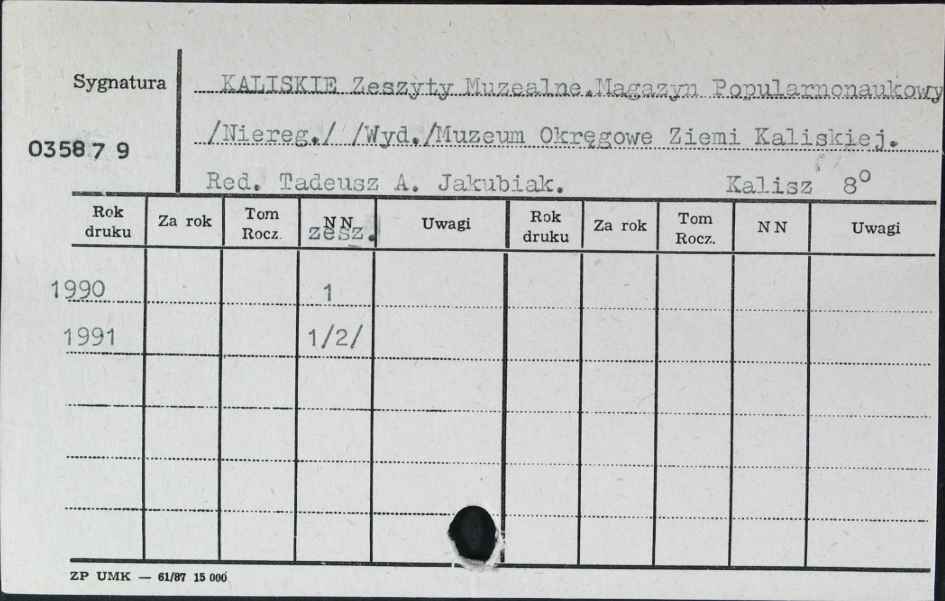 Sygnatura KALISKIE Zeszyty Muzealne.Magazyn Popularnonaukowy
035879 /Niereg./ /Wyd./Muzeum Okręgowe Ziemi Kaliskiej.
Red. Tadeusz A. Jakubiak. Kalisz 8°
Rok druku Za rok Tom Rocz. NN zesz. Uwagi Rok druku Za rok Tom Rocz. NN Uwagi
1990 1
1991 1/2/
ZP UMK — 61/87 15 000